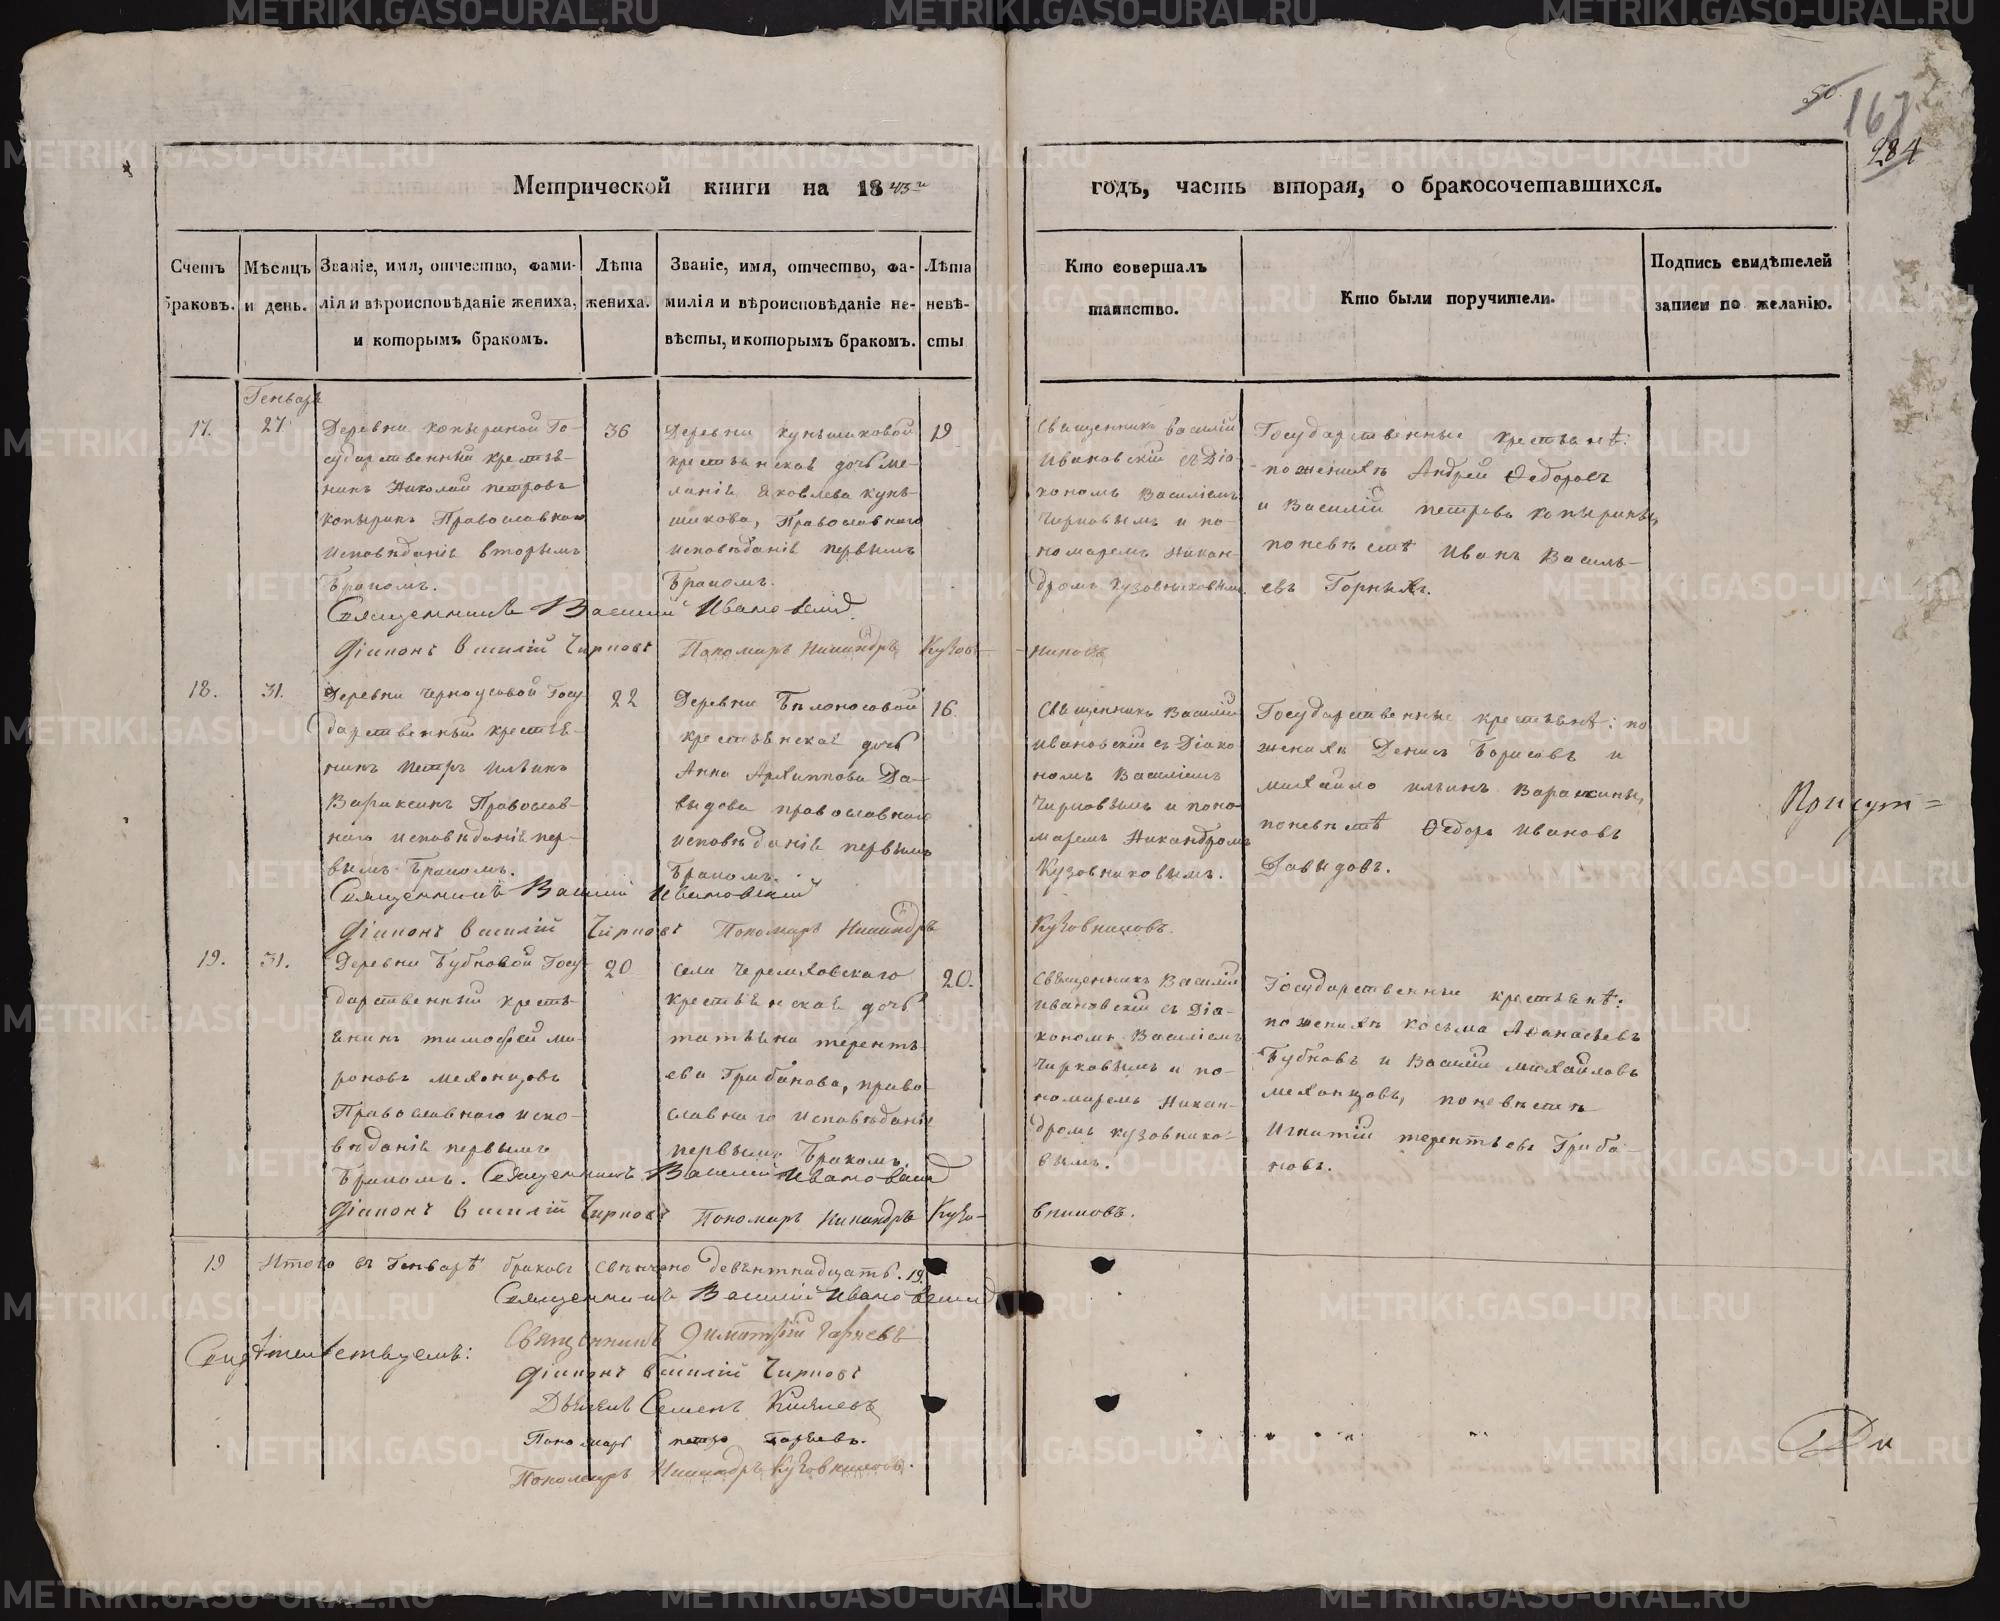 50
167
284
Метрической книги на 1843й
годъ, часть вторая, о бракосочетавшихся.
Счетъ браковъ.
Мѣсяцъ и день.
Званіе, имя, отчество, фами-
лія и вѣроисповѣданіе жениха,
и которымъ бракомъ.
Лѣта
жениха.
Званіе, имя, отчество, фа-
милія и вѣроисповѣданіе не-
вѣсты, и которымъ бракомъ.
Лѣта
невѣ-
сты
Кто совершалъ
таинство.
Кто были поручители.
Подпись свидѣтелей
записи по желанію.
Генварь
17.
27
Деревни Копыриной Го-
сударственный кресть-
нинъ Николай Петровъ
Копыринъ Православнаго
исповѣданія вторымъ
бракомъ.
36
Деревни Куньшиковой
крестьянская дочь Ме-
ланія Яковлева Кунь-
шикова, Православнаго
исповѣданія первымъ
бракомъ.
19
Священникъ Василій
Ивановскій съ Діа-
кономъ Василіемъ
Чирковымъ и по-
номаремъ Никан-
дромъ Кузовниковымъ.
Государственные крестьянѣ:
по женихѣ Андрей Ѳедоровъ
и Василій Петровъ Копырины,
по невѣстѣ Иванъ Василь-
евъ Горныхъ.
Священникъ Василій Ивановскій
Діаконъ Василій Чирковъ Пономарь Никандръ Кузов-
никовъ
18.
31.
Деревни Черноусовой Госу-
дарственный кресть-
нинъ Петръ Ильинъ
Вараксинъ Православ-
наго исповѣданія пер-
вымъ бракомъ.
22
Деревни Бѣлоносовой
крестьянская дочь
Анна Архиппова Да-
выдова православнаго
исповѣданія первымъ
бракомъ.
16
Священникъ Василій
Ивановскій съ Діако
номъ Василіемъ
Чирковымъ и поно
маремъ Никандромъ
Кузовниковымъ.
Государственные крестьянѣ: по
женихѣ Денисъ Борисовъ и
Михайло Ильинъ Вараксины,
по невѣстѣ Ѳедоръ Ивановъ
Давыдовъ.
Священникъ Василій Ивановскій
Діаконъ Василій Чирковъ Пономарь Никандръ
Кузовниковъ.
19.
31.
Деревни Бубновой Госу-
дарственный кресть-
янинъ Тимофей Ми-
роновъ Мехонцовъ
Православнаго испо-
вѣданія первымъ
бракомъ.
20
Села Черемховскаго
крестьянская дочь
Татьяна Теренть
ева Грибанова, право-
славнаго исповѣданія
первымъ бракомъ.
20.
Священникъ Василій
Ивановскій съ Діа-
кономъ Василіемъ
Чирковымъ и по-
номаремъ Никан-
дромъ Кузовнико-
вымъ.
Государственные крестьянѣ:
по женихѣ Косьма Аѳанасьевъ
Бубновъ и Василій Михайловъ
Мехонцовъ, по невѣстѣ
Игнатій Терентьевъ Гриба-
новъ.
Священникъ Василій Ивановскій
Діаконъ Василій Чирковъ Пономарь Никандръ Кузо-
вниковъ.
19 Итого въ Генварѣ браковъ свѣнчано девятнадцать. 19.
Священникъ Василій Ивановскій
Свидѣтельствуемъ:
Священникъ Димитрій
Діаконъ Василій Чирковъ
Семенъ Киселевъ
Пономарь Петръ
Пономарь Никандръ Кузовниковъ.
Присут=